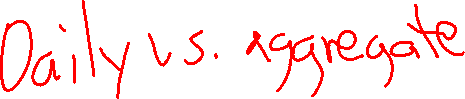 Daily vs. aggregate